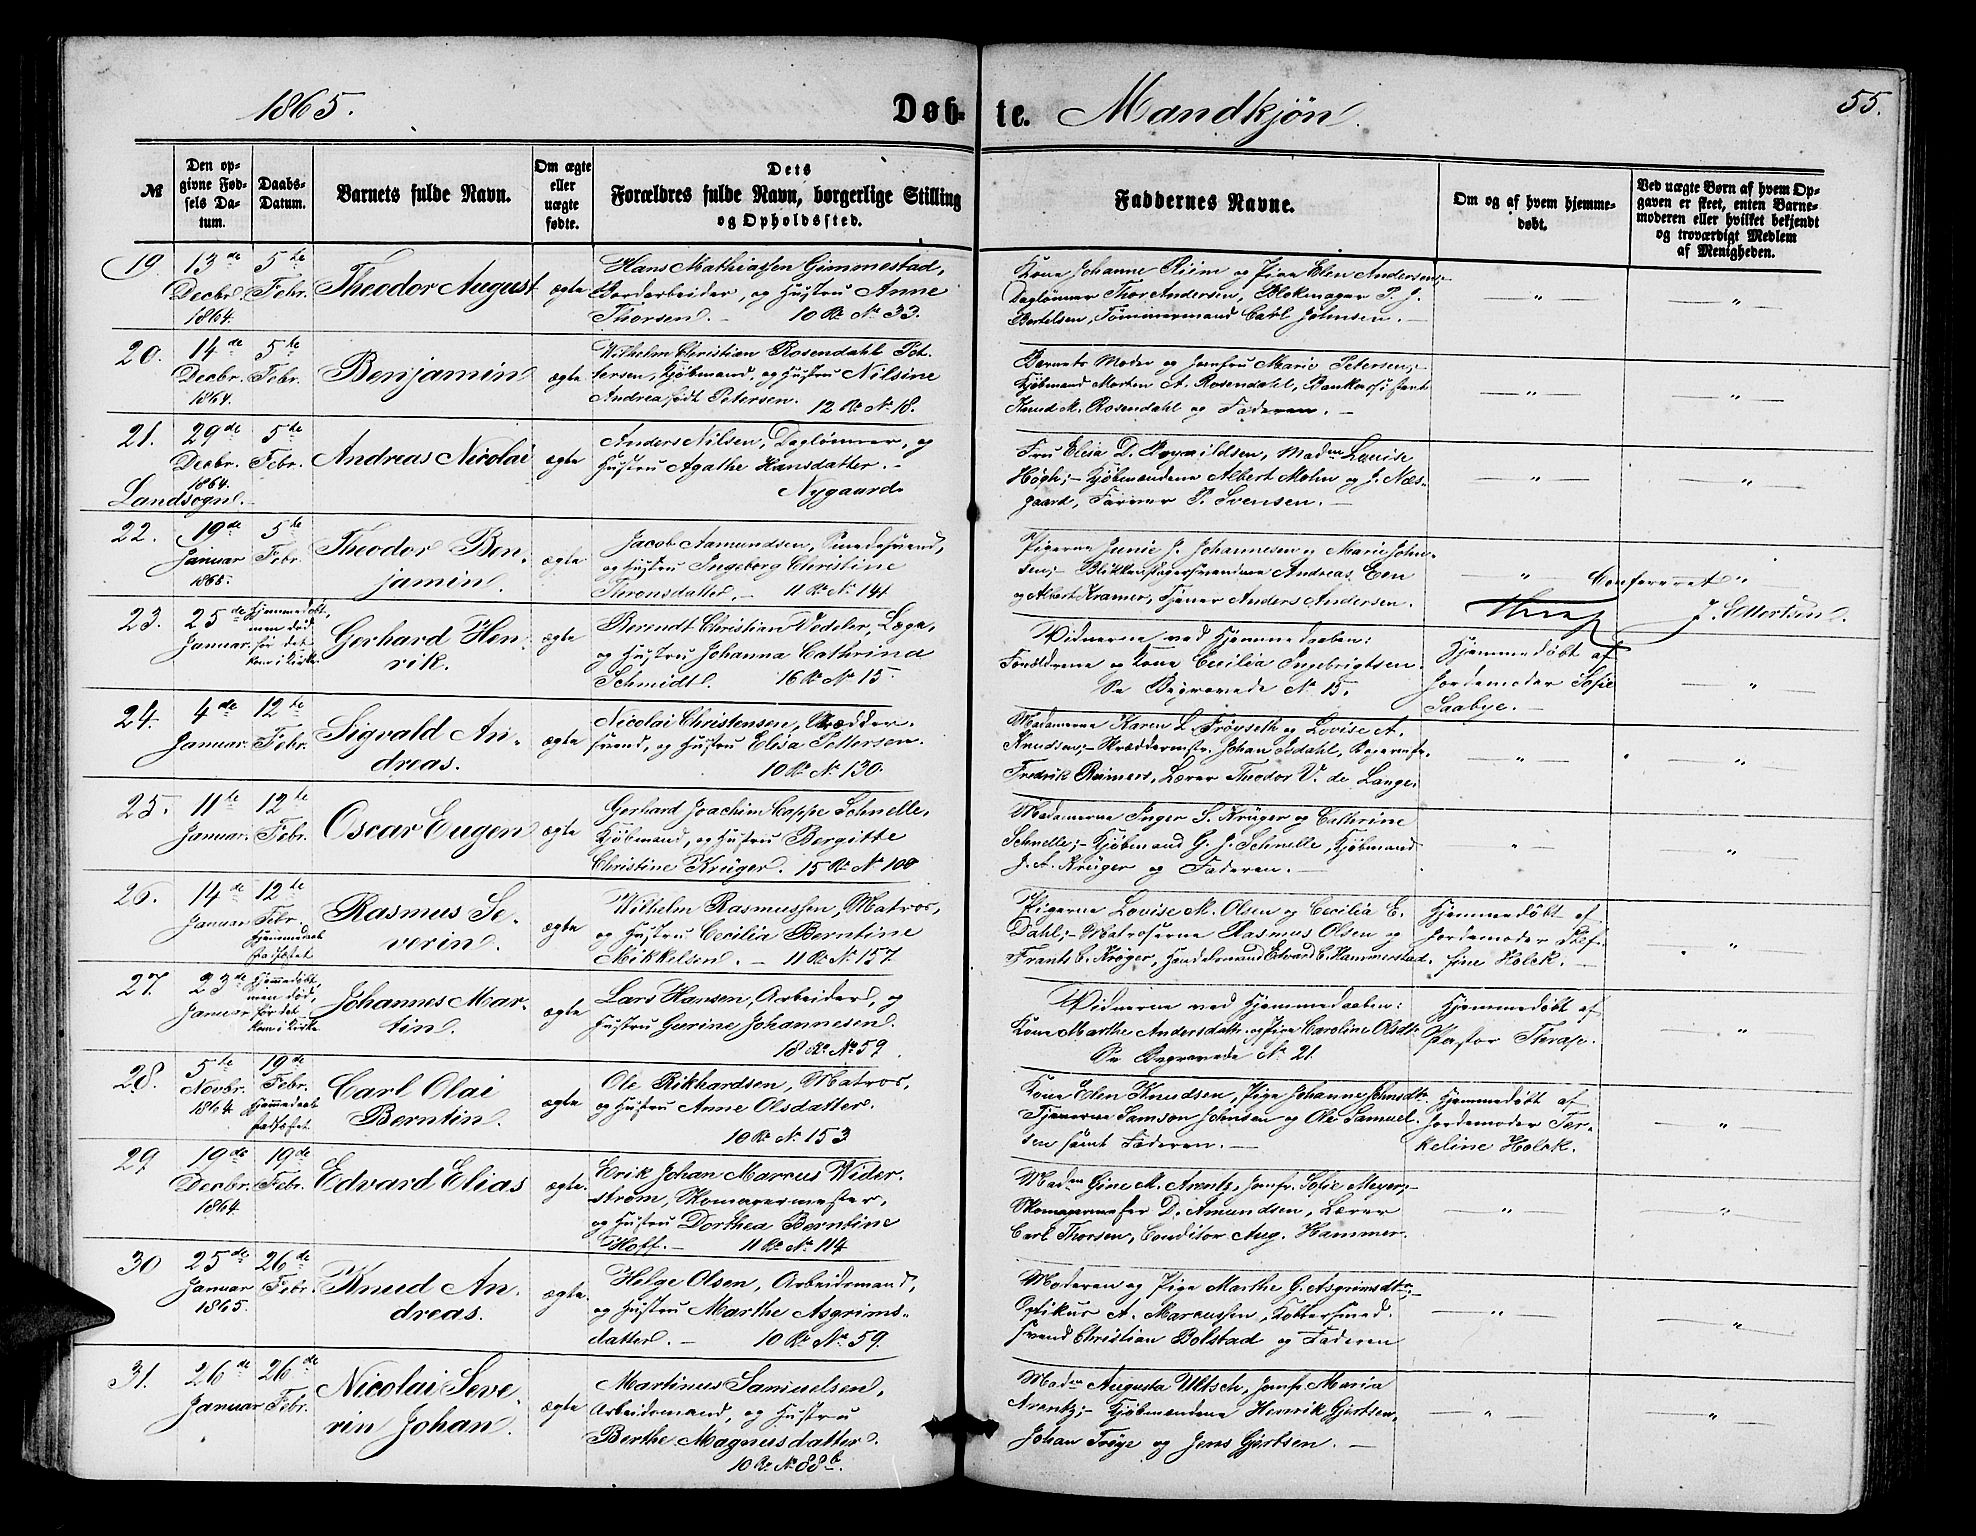 1865.
Døb-
te.
Mandkjøn.
55.
№
Den op-
givne Fød-
sels Da-
tum.
Daabs-
Datum.
Barnets fulde Navn.
Om ægte
eller
uægte
fødte.
Dets
Forældres fulde Navn, borgerlige Stilling
og Opholdssted.
Faddernes Navne.
Om og af hvem hjemme-
døbt.
Ved uægte Børn af hvem Op-
gaven er skeet, enten Barne-
moderen eller hvilket bekjendt
og troværdigt Medlem
af Menigheden.
19. 13de Decbr. 1864. 5te Febr. Theodor August ægte
Hans Mathiassen Gimmestad,
Bordarbeider, og Hustru Anne
Thorsen. – 10 R. No 33.
Kone Johanne Riim og Pige Elen Andersen;-
Daglønner Thor Andersen, Blokmager P. J.
Bertelsen, Tømmermand Carl Johnsen. –
20. 14de Decbr. 1864. 5te Febr. Benjamin ægte
Wilhelm Christian Rosendahl Pet-
tersen, Kjøbmand, og Hustru Nilsine
Andrea født Petersen. 12 R. No 18.
Barnets Moder og Jomfru Marie Petersen;-
Kjøbmand Morten A. Rosendahl, Bankassistent
Knud M. Rosendahl og Faderen. –
21. 29de Decbr. 1864. 5te Febr. Andreas Nicolai ægte
Landsogn. –
Anders Nilsen, Daglønner, og
Hustru Agathe Hansdatter. –
Nygaard
Fru Elisa D. Mad. Lovise
Høgh;- Kjøbmændene Albert Mohn og J. Næs-
gaard, Farver P. Svensen. –
22. 19de Januar 1865. 5te Febr. Theodor Ben-
jamin. ægte
Jacob Aamundsen, Smedesvend,
og Hustru Ingeborg Christine
Thronsdatter, – 11 R. No 141
Pigerne Junie J. Johannesen og Marie John-
sen;- Blikkenslagersvendene Andreas Een
og Albert Kramer, Tjener Anders Andersen.
Confereret
Thrap
23. 25de Januar. Hjemmedøbt,
men død
før det
kom i Kirke. Gerhard Hen-
rik. ægte
Berendt Christian Vedeler, Læge,
og Hustru Johanna Cathrina
Schmidt. 16 R. No 15.
Vidnerne ved Hjemmedaaben:
Forældrene og Kone Cecilia Ingebrigtsen.
Se Begravede No 15.
Hjemmedøbt af
Jordemoder Sofie
Saabye. –
24. 4de Januar. 12te Febr. Sigvald An-
dreas. ægte
Nicolai Christensen, Skrædder-
svend, og Hustru Elisa Pettersen.
10 R. No 130.
Madamerne Karen L. Frøyseth og Lovise A.
Knudsen;- Skræddermstr. Johan Isdahl,
Fredrik Reimers, Lærer Theodor V. de Lange.
25. 11te Januar. 12te Febr. Oscar Eugen ægte
Gerhard Joachim Cappe Schnelle,
Kjøbmand, og Hustru Bergitte
Christine Krüger. 15 R. No 100
Madamerne Inger S. Krüger og Cathrine
Schnelle;- Kjøbmand G. J. Schnelle, Kjøbmand
J. A. Krüger og Faderen. –
26. 14de Januar 12te Febr. Hjemmedaab
stadfæstet Rasmus Se-
verin. ægte
Wilhelm Rasmussen, Matros,
og Hustru Cecilia Berntine
Mikkelsen. – 11 R. No 157
Pigerne Lovise M. Olsen og Cecilia E.
Dahl;- Matroserne Rasmus Olsen og
Frants C. Krøger, Handelsmand Edvard C. Hammerstad.
Hjemmedøbt af
Jordemoder
Holck. –
27. 23de Januar Hjemmedøbt,
men død,
før det
kom i Kirke Johannes Mar-
tin. ægte
Lars Hansen, Arbeider, og
Hustru Gurine Johannesen.
18 R. No 59.
Vidnerne ved Hjemmedaaben:
Kone Marthe Andersdatter og Pige Caroline Olsdtr
Se Begravede No 21.
Hjemmedøbt af
Pastor Thrap.
28. 5te Novbr. 1864 19de Febr. Hjemmedaab
stadfæstet. Carl Olai
Berntin. ægte
Ole Rikhardsen, Matros,
og Hustru Anne Olsdatter.
10 R. No 153
Kone Elen Knudsen, Pige Johanne Johnsdtr
Tjenerne Samson Johnsen og Ole Samuel-
sen samt Faderen. –
Hjemmedøbt af
Jordemoder Ter-
keline Holck.
29 19de Decbr. 1864. 19de Febr. Edvard Elias ægte.
Erik Johan Marcus Wider-
strøm, Skomagermester,
og Hustru Dorthea Berntine
Hoff. – 11 R. No 114
Mad. Gine M. Arentz, Jomfr. Sofie Meyer;-
Skomagermester D. Amundsen, Lærer
Carl Thorsen, Conditor Aug. Hammer.
30 25de Januar 1865. 26de Febr. Knud An-
dreas. ægte.
Helge Olsen, Arbeidsmand,
og Hustru Marthe Asgrims-
datter. – 10 R. No 59.
Moderen og Pige Marthe G. Asgrimsdtr;-
Optikus A. Marcussen, Kobbersmed-
svend Christian Bolstad og Faderen
31. 26de Januar 26de Febr. Nicolai Seve-
rin Johan. ægte
Martinus Samuelsen,
Arbeidsmand, og Hustru
Berthe Magnusdatter.
10 R. No 88b.
Mad. Augusta Ultsch, Jomfr. Maria
Arentz;- Kjøbmændene Henrik Gjertsen,
Johan Frøye og Jens Gjertsen. –